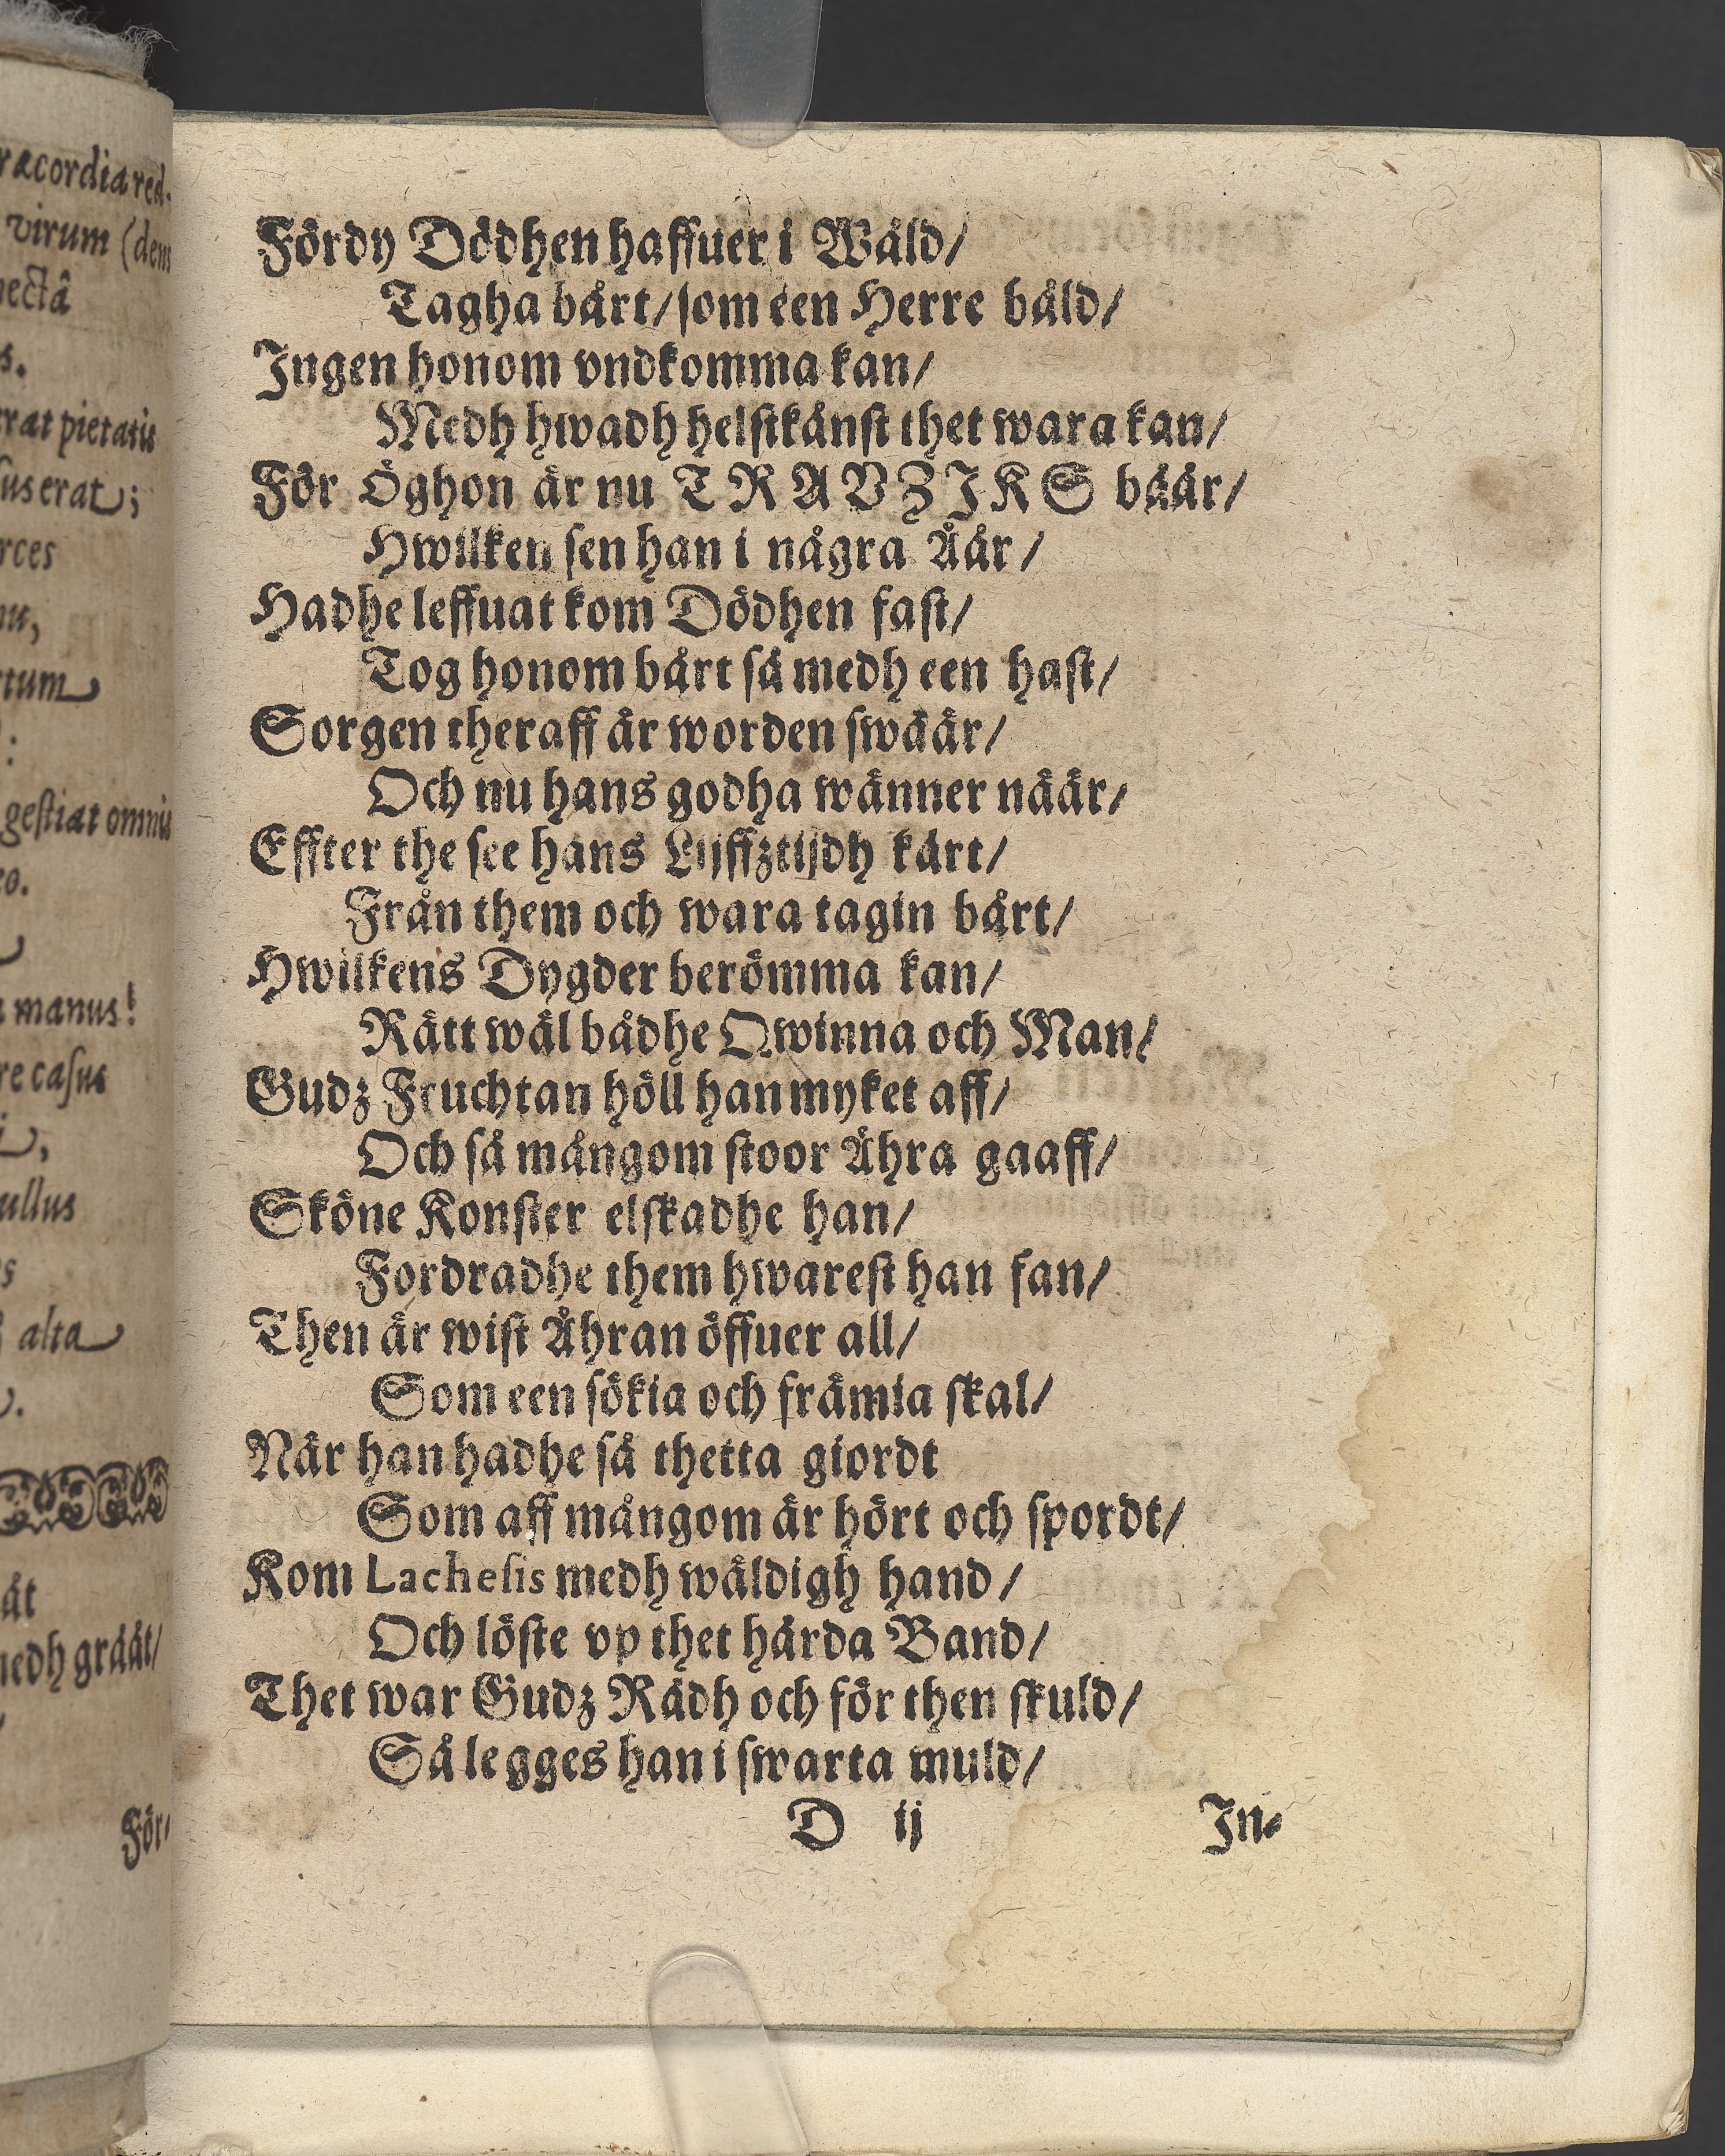 Fördy Dödhen haffuer i Wåld/
Tagha bårt/ som een Herre båld/
Ingen honom vndkomma kan/
Medh hwadh helst kånst thet wara kan/
För Öghon är nu TRAVZIKS båår/
Hwilken sen han i några Åår/
Hadhe leffuat kom Dödhen fast/
Tog honom bårt så medh een hast/
Sorgen theraff är worden swäär/
Och nu hans godha wänner näär/
Effter the see hans Lijffztijdh kårt/
Från them och wara tagin bårt/
Hwilkens Dygder berömma kan/
Rätt wäl bådhe Qwinna och Man/
Gudz Fruchtan höll han myket aff/
Och så mångom stoor Ähra gaaff/
Sköne Konster elskadhe han/
Fordradhe them hwarest han fan/
Then är wist Ähran öffuer all/
Som een sökia och främia skal/
När han hadhe så thetta giordt
Som aff mångom är hört och spordt/
Kom Lachesis medh wäldigh hand/
Och löste vp thet hårda Band/
Thet war Gudz Rådh och för then skuld/
Så legges han i swarta muld/
D ij
In-
ræcordia red-
virum (dens
pectâ
s.
rat pietatis
sus erat;
rces
nu,
rtum
:
gestiat omnis
eo.
manus!
re casus
ullus
s
alta
åt
medh grååt/
För/